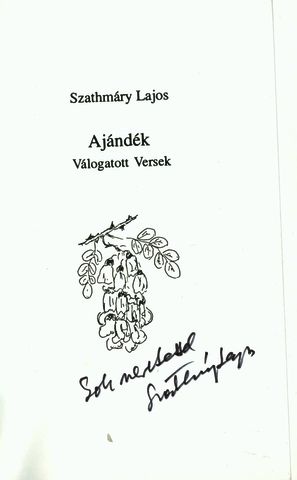 Szathmáry Lajos
Ajándék
Válogatott Versek
Sok szeretettel
Szathmáry Lajos